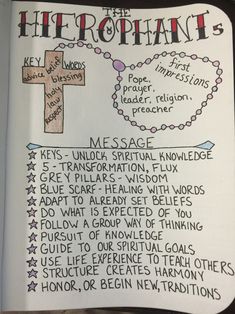 THE
HIEROPHANT 5
KEY WORDS
advice belief
blessing
holy
law
respect
first
impressions
Pope,
prayer,
leader, religion,
preacher
MESSAGE
KEYS - UNLOCK SPIRITUAL KNOWLEDGE
5 - TRANSFORMATION, FLUX
GREY PILLARS - WISDOM
BLUE SCARF - HEALING WITH WORDS
ADAPT TO ALREADY SET BELIEFS
DO WHAT IS EXPECTED OF YOU
FOLLOW A GROUP WAY OF THINKING
PURSUIT OF KNOWLEDGE
GUIDE TO OUR SPIRITUAL GOALS
USE LIFE EXPERIENCE TO TEACH OTHERS
STRUCTURE CREATES HARMONY
HONOR, OR BEGIN NEW, TRADITIONS